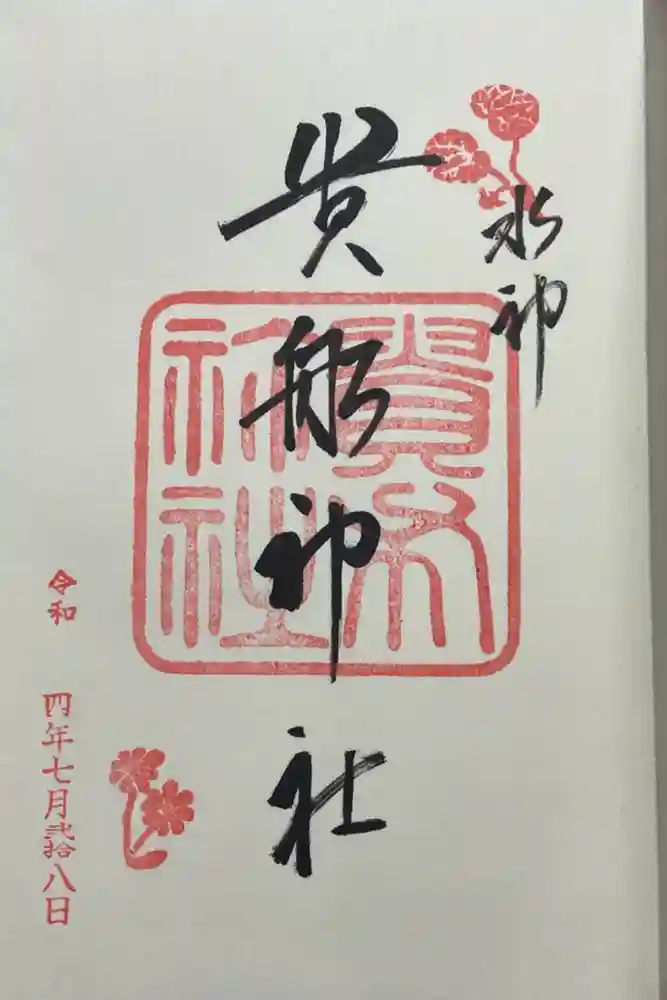 水神
貴船神社
貴布
祢社
令和 四年七月弐拾八日